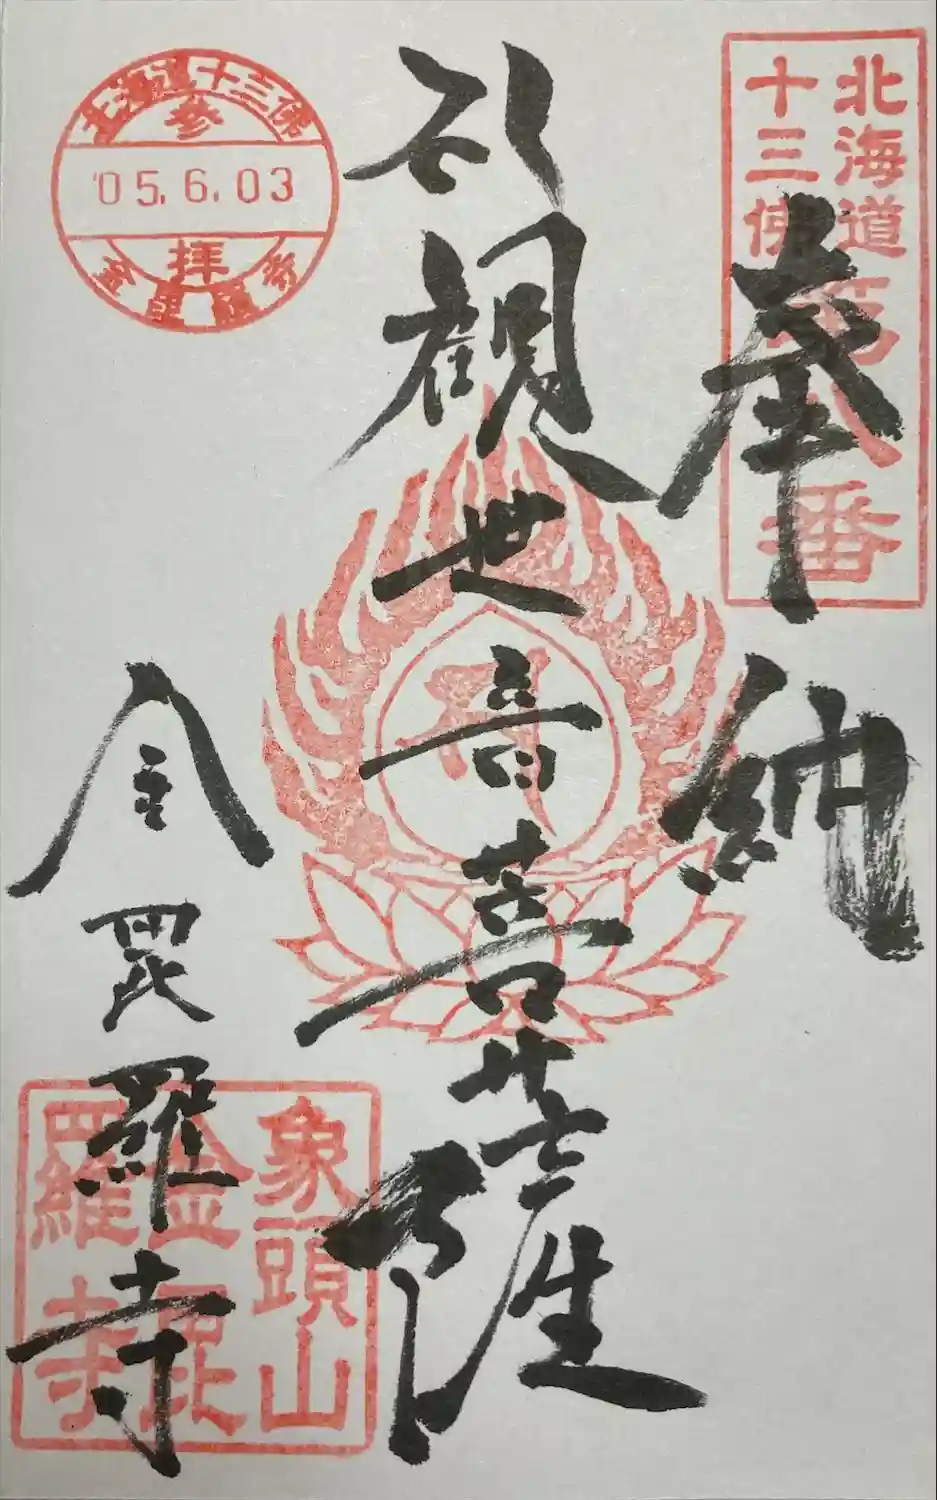 北海道
十三佛
第八番
奉納
観世音菩薩
金毘羅寺
象頭山
金毘
羅寺
北海道十三佛
参
'05.6.03
拝
金毘羅寺